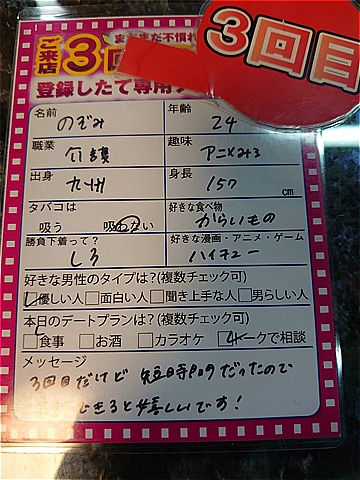 ご来店3回
まだまだ不慣れ
3回目
登録したて専用
名前 のぞみ 年齢 24
職業 介護 趣味 アニメみる
出身 九州 身長 157 cm
タバコは 吸う 吸わない 好きな食べ物 からいもの
勝負下着って? しろ 好きな漫画・アニメ・ゲーム ハイキュー
好きな男性のタイプは?(複数チェック可)
優しい人 面白い人 聞き上手な人 男らしい人
本日のデートプランは?(複数チェック可)
食事 お酒 カラオケ トークで相談
メッセージ
3回目だけど 短時間だったので
できると嬉しいです!